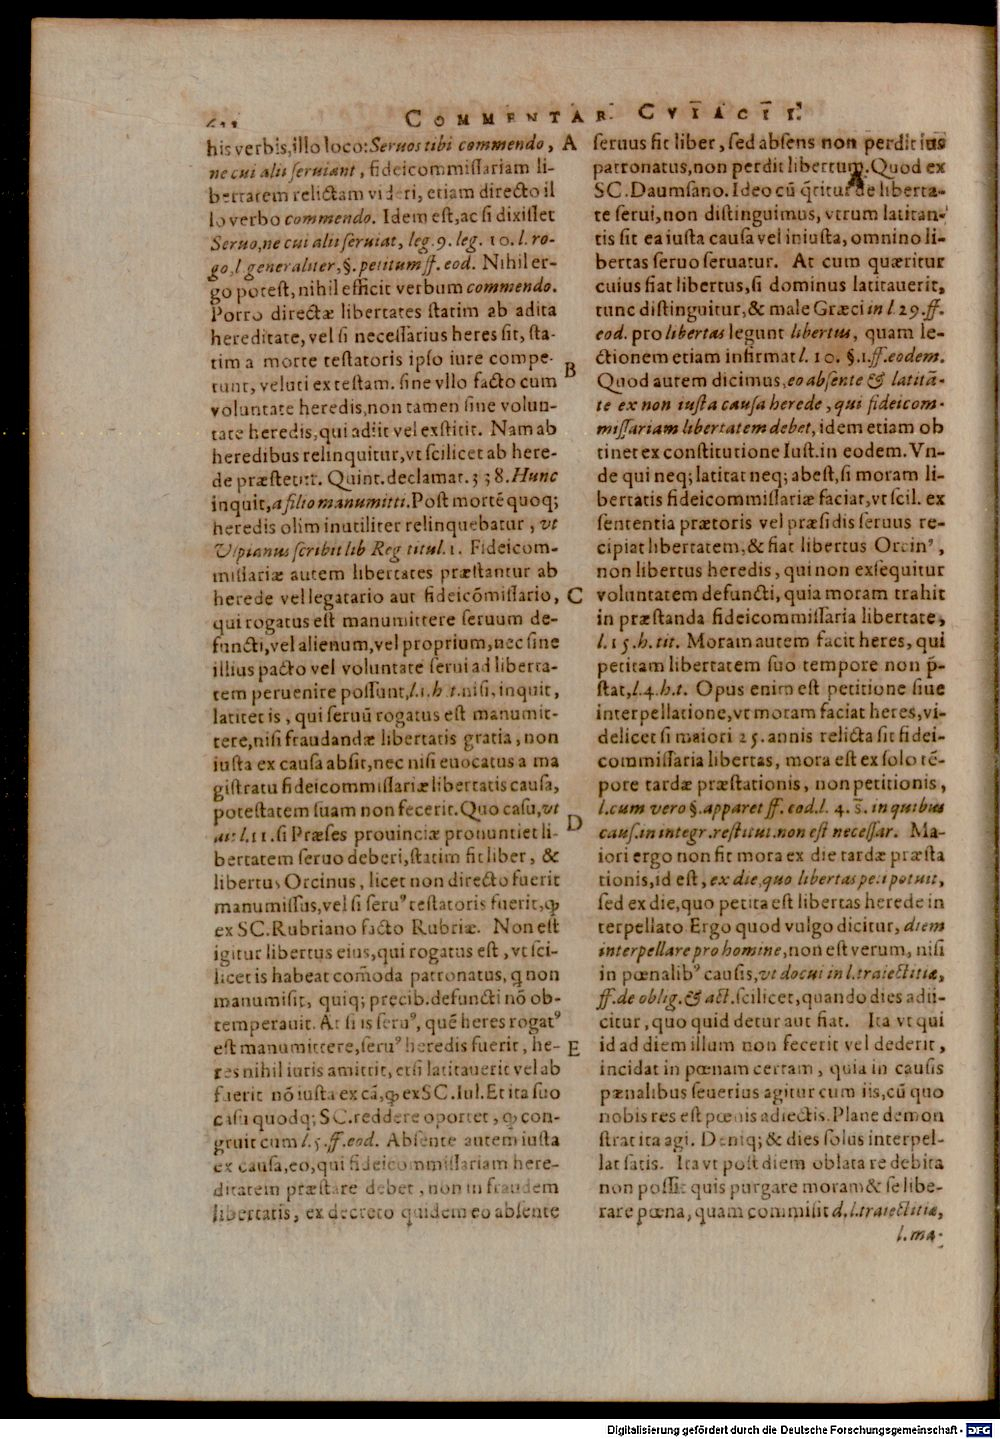 COMMENTAR. CVIACII I.
his verbis, illo loco: Seruos tibi commendo, A
ne cui alii seruiant, fideicommissariam li-
bertatem relictam videri, etiam directo il
lo verbo commendo. Idem est, ac si dixisset
Seruo, ne cui alii seruiat, leg. 9. leg. 10. l. ro-
go, l generaliter, §. petitum ff. eod. Nihil er-
go potest, nihil efficit verbum commendo.
Porro directæ libertates statim ab adita
hereditate, vel si necessarius heres sit, sta-
tim a morte testatoris ipso iure compe-
tunt, veluti ex testam. sine vllo facto cum B
voluntate heredis, non tamen sine volun-
tate heredis, qui adiit vel exstitit. Nam ab
heredibus relinquitur, vt scilicet ab here-
de præstetur. Quint. declamat. 338. Hunc
inquit, a filio manumitti. Post mortē quoq;
heredis olim inutiliter relinquebatur, vt
Vlpianus scribit lib Reg titul. 1. Fideicom-
missariæ autem libertates præstantur ab
herede vel legatario aut fideicōmissario, C
qui rogatus est manumittere seruum de-
functi, vel alienum, vel proprium, nec sine
illius pacto vel voluntate serui ad liberta-
tem peruenire possunt, l. 1. h. t. nisi, inquit,
latitet is, qui seruū rogatus est manumit-
tere, nisi fraudandæ libertatis gratia, non
iusta ex causa absit, nec nisi euocatus a ma
gistratu fideicommissariæ libertatis causa,
potestatem suam non fecerit. Quo casu, vt
ait l. 11. si Præses prouinciæ pronuntiet li- D
bertatem seruo deberi, statim fit liber, &
libertus Orcinus, licet non directo fuerit
manumissus, vel si seruꝰ testatoris fuerit, ꝙ
ex SC. Rubriano facto Rubriæ. Non est
igitur libertus eius, qui rogatus est, vt sci-
licet is habeat com̄oda patronatus, q non
manumisit, quiq; precib. defuncti nō ob-
temperauit. At si is seruꝰ, quē heres rogatꝰ
est manumittere, seruꝰ heredis fuerit, he- E
res nihil iuris amittit, etsi latitauerit vel ab
fuerit nō iusta ex cā, ꝙ ex SC. Iul. Et ita suo
casu quodq; SC. reddere oportet, ꝙ con-
gruit cum l. 5. ff. eod. Absente autem iusta
ex causa, eo, qui fideicommissariam here-
ditatem præstare debet, non in fraudem
libertatis, ex decreto quidem eo absente
seruus fit liber, sed absens non perdit ius
patronatus, non perdit libertum. Quod ex
SC. Daumsano. Ideo cū q̄ritur de liberta-
te serui, non distinguimus, vtrum latitan-
tis sit ea iusta causa vel iniusta, omnino li-
bertas seruo seruatur. At cum quæritur
cuius fiat libertus, si dominus latitauerit,
tunc distinguitur, & male Græci in l. 29. ff.
eod. pro libertas legunt libertus, quam le-
ctionem etiam infirmat l. 10. §. 1. ff. eodem.
Quod autem dicimus, eo absente & latitā-
te ex non iusta causa herede, qui fideicom-
missariam libertatem debet, idem etiam ob
tinet ex constitutione Iust. in eodem. Vn-
de qui neq; latitat neq; abest, si moram li-
bertatis fideicommissariæ faciat, vt scil. ex
sententia prætoris vel præsidis seruus re-
cipiat libertatem, & fiat libertus Orcinꝰ,
non libertus heredis, qui non exsequitur
voluntatem defuncti, quia moram trahit
in præstanda fideicommissaria libertate,
l. 15. h. tit. Moram autem facit heres, qui
petitam libertatem suo tempore non p̄-
stat, l. 4. h. t. Opus enim est petitione siue
interpellatione, vt moram faciat heres, vi-
delicet si maiori 25. annis relicta sit fidei-
commissaria libertas, mora est ex solo tē-
pore tardæ præstationis, non petitionis,
l. cum vero §. apparet ff. eod. l. 4. s̄. in quibus
caus. in integr. restitut. non est necessar. Ma-
iori ergo non fit mora ex die tardæ præsta
tionis, id est, ex die, quo libertas peti potuit,
sed ex die, quo petita est libertas herede in
terpellato Ergo quod vulgo dicitur, diem
interpellare pro homine, non est verum, nisi
in pœnalibꝰ causis, vt docui in l. traiectitiæ,
ff. de oblig. & act. scilicet, quando dies adii-
citur, quo quid detur aut fiat. Ita vt qui
id ad diem illum non fecerit vel dederit,
incidat in pœnam certam, quia in causis
pænalibus seuerius agitur cum iis, cū quo
nobis res est pœnis adiectis. Plane demon
strat ita agi. Deniq; & dies solus interpel-
lat satis. Ita vt post diem oblata re debita
non possit quis purgare moram & se libe-
rare pœna, quam commisit d. l. traiectitiæ,
l. ma-
Digitalisierung gefördert durch die Deutsche Forschungsgemeinschaft - DFG